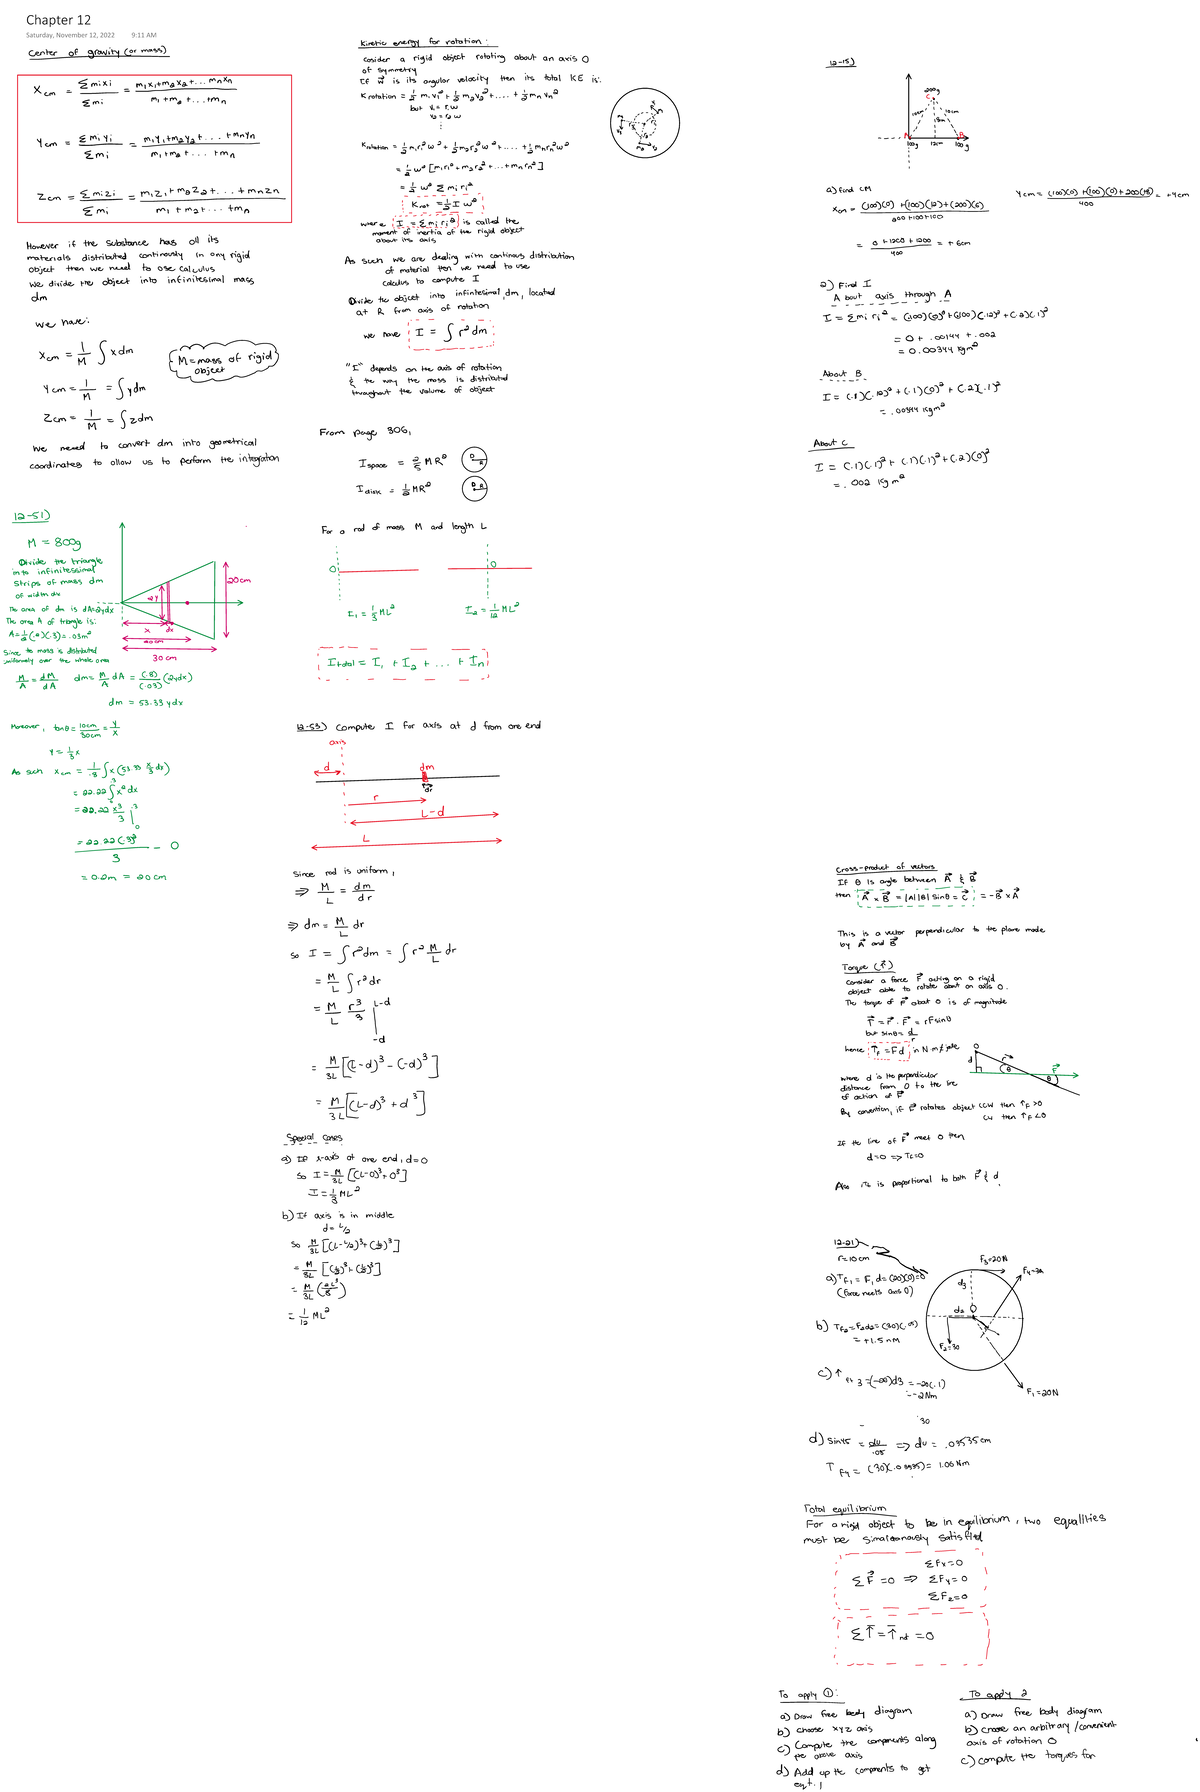 Chapter 12
Saturday, November 12, 2022 9:11 AM
Center of gravity (or mass)
Xcm = Σmixi / Σmi = m1x1+m2x2+...mnxn / m1+m2+...+mn
Ycm = Σmiyi / Σmi = m1y1+m2y2+...+mnyn / m1+m2+...+mn
Zcm = Σmizi / Σmi = m1z1+m2z2+...+mnzn / m1+m2+...+mn
However if the substance has all its
materials distributed continously in any rigid
object then we need to use calculus
We divide the object into infinitesimal mass
dm
we have:
Xcm = 1/M ∫xdm
M=mass of rigid
object
Ycm = 1/M = ∫ydm
Zcm = 1/M = ∫zdm
We need to convert dm into geometrical
coordinates to allow us to perform the integration
12-51)
M = 800g
Divide the triangle
into infinitesimal
strips of mass dm
of width dx
The area of dm is dA=2ydx
The area A of triangle is:
A=1/2(.2)(.3)=.03m²
Since the mass is distributed
uniformly over the whole area
2y
20cm
x
dx
20cm
30 cm
M/A = dM/dA dm = M/A dA = (.8)/(.03) (2ydx)
dm = 53.33 ydx
Moreover, tanθ = 10cm/30cm = y/x
y = 1/3x
As such xcm = 1/.8 ∫x(53.33 x/3 dx)
= 22.22 ∫x²dx
.3
= 22.22 x³/3 | .3 0
= 22.22(.3)³ / 3 - 0
= 0.2m = 20cm
Kinetic energy for rotation:
Cosider a rigid object rotating about an axis O
of symmetry
If w is its angular velocity then its total KE is:
Krotation = 1/2 m1v1² + 1/2 m2v2² + .... + 1/2 mnvn²
but v1 = r1w
v2 = r2w
⋮
Krotation = 1/2 m1r1²w² + 1/2 m2r2²w² + .... + 1/2 mnrn²w²
= 1/2 w² [m1r1² + m2r2² + ... + mnrn²]
= 1/2 w² Σ miri²
Krot = 1/2 I w²
where I = Σmiri² is called the
moment of inertia of the rigid object
about its axis
As such we are dealing with continous distribution
of material then we need to use
calculus to compute I
Divide the object into infintesimal, dm, located
at R from axis of rotation
we have I = ∫r²dm
"I" depends on the axis of rotation
& the way the mass is distributed
throughout the volume of object
From page 306,
Ispace = 2/5 MR² O R
Idisk = 1/2 MR² O R
For a rod of mass M and length L
O
O
I1 = 1/3 ML²
I2 = 1/12 ML²
Itotal = I1 + I2 + ... + In
12-53) Compute I for axis at d from one end
axis
d
dm
dr
r
L-d
L
Since rod is uniform,
⇒ M/L = dm/dr
⇒ dm = M/L dr
so I = ∫r²dm = ∫r² M/L dr
= M/L ∫r²dr
= M/L r³/3 | L-d -d
= M/3L [(L-d)³ - (-d)³]
= M/3L [(L-d)³ + d³]
Special Cases
a) If x-axis at one end, d=0
So I = M/3L [(L-0)³+0³]
I = 1/3 ML²
b) If axis is in middle
d = L/2
So M/3L [(L-L/2)³+(L/2)³]
= M/3L [(L/2)³+(L/2)³]
= M/3L (2L³/8)
= 1/12 ML²
12-15)
200g
C
10cm
10cm
A
B
100g
12cm
100g
a) find CM
xcm = (100)(0)+(100)(12)+(200)(6) / 200+100+100
Ycm = (100)(0)+(100)(0)+200(8) / 400 = +4cm
= 0+1200+1200 / 400 = +6cm
2) Find I
About axis through A
I = Σmiri² = (.100)(0)²+(.100)(.12)²+(.2)(.1)²
= 0+.00144+.002
= 0.00344 kgm²
About B
I = (.1)(.12)²+(.1)(0)²+(.2)(.1)²
= .00344 kgm²
About C
I = (.1)(.1)²+(.1)(.1)²+(.2)(0)²
= .002 kg m²
Cross-product of vectors
If θ is angle between A & B
then A x B = |A||B|sinθ = C = -B x A
This is a vector perpendicular to the plane made
by A and B
Torque (τ)
Consider a force F acting on a rigid
object able to rotate about an axis O.
The torque of F about O is of magnitude
τ = r · F = rFsinθ
but sinθ = d/r
hence τF = Fd in N·m
where d is the perpendicular
distance from O to the line
of action of F
O
d
r
θ
θ
F
By convention, if F rotates object CCW then τF>0
CW then τF<0
If the line of F meet O then
d=0 ⇒ τ=0
Also is proportional to both F & d
12-21)
r=10cm
a) τF1 = F1d1=(20)(0)=0
(Force meets axis O)
F3=20N
d3
d2
O
F2=30
F1=20N
b) τF2=F2d2=(30)(.05)
= +1.5 nM
c) τF3=(-20)d3 = -20(.1)
= -2Nm
30
d) sin45 = d4/.05 ⇒ d4 = .03535cm
τF4 = (30)(.03535) = 1.06 Nm
Total equilibrium
For a rigid object to be in equilibrium, two equalities
must be simaltanously satisfied
ΣF=0 ⇒ ΣFx=0
ΣFy=0
ΣFz=0
Στ=τnet=0
To apply ①:
a) Draw free body diagram
b) choose xyz axis
c) Compute the components along
the above axis
d) Add up the components to get
eqt. 1
To apply 2
a) Draw free body diagram
b) choose an arbitrary/convenient
axis of rotation O
c) compute the torques for